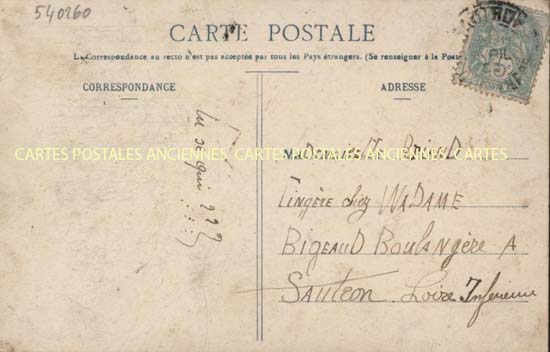 540260
CARTE POSTALE
La Correspondance au recto n'est pas acceptée par tous les Pays étrangers. (Se renseigner à la Poste
CORRESPONDANCE
ADRESSE
CARTES POSTALES ANCIENNES CARTES POSTALES ANCIENNES CARTES POSTALES ANCIENNES
Lingère chez MADAME
BIGEAUD BOULANGÈRE A
SAUTRON Loire Inférieure
de qui ???